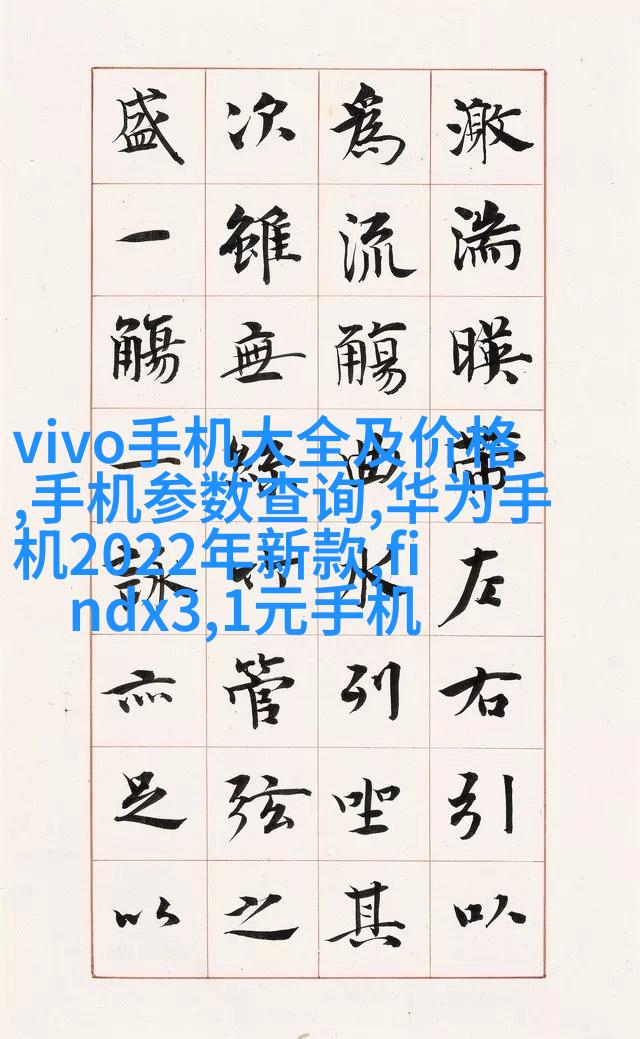 激湍暎帶左右引以
為流觴曲水列坐其
次雖無絲竹管弦之
盛一觴一詠亦足以
vivo手机大全及价格
,手机参数查询,华为手
机2022年新款,fi
ndx3,1元手机